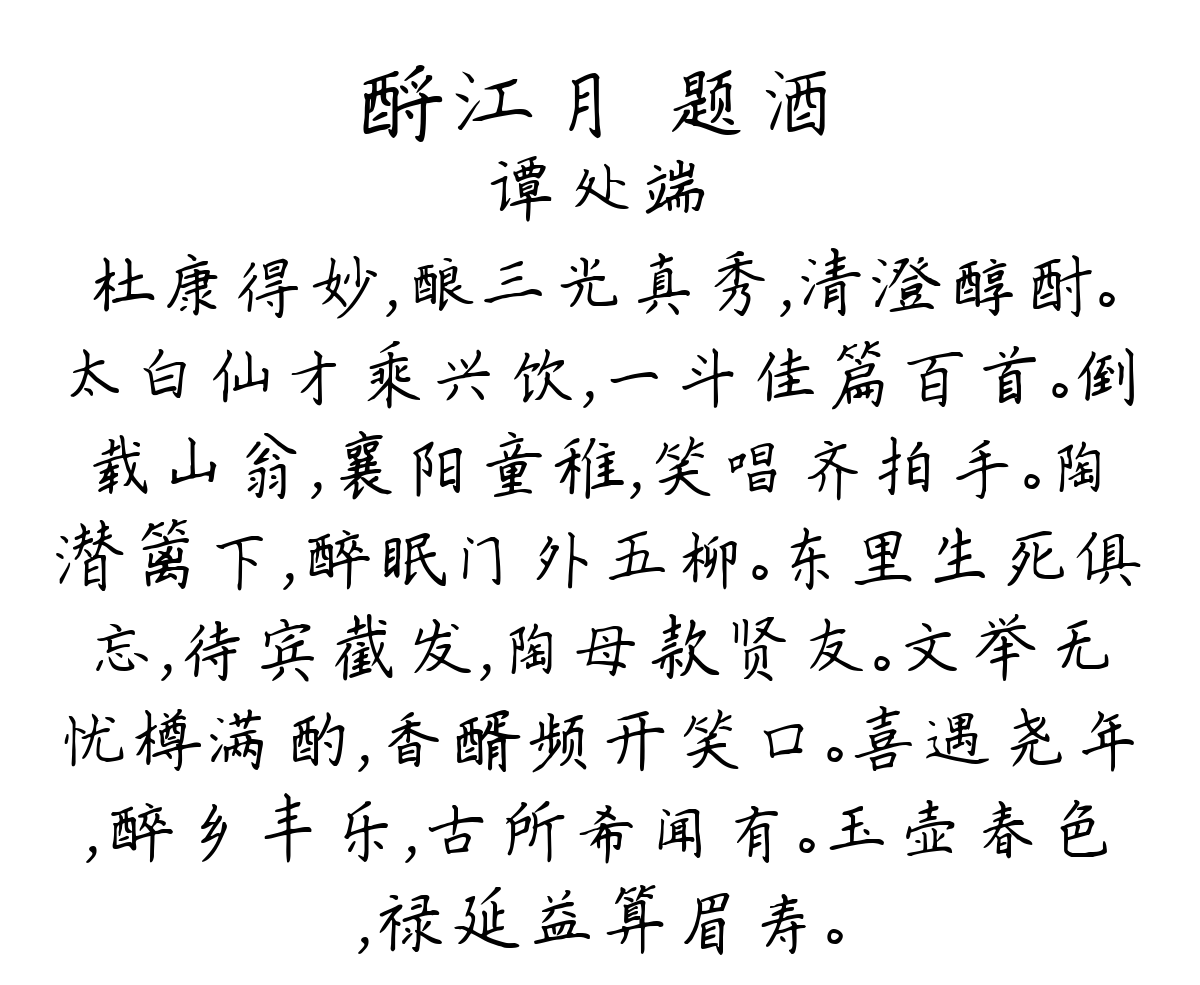 酹江月 题酒
谭处端
杜康得妙,酿三光真秀,清澄醇酎。
太白仙才乘兴饮,一斗佳篇百首。倒
载山翁,襄阳童稚,笑唱齐拍手。陶
潜篱下,醉眠门外五柳。东里生死俱
忘,待宾截发,陶母款贤友。文举无
忧樽满酌,香醑频开笑口。喜遇尧年
,醉乡丰乐,古所希闻有。玉壶春色
,禄延益算眉寿。